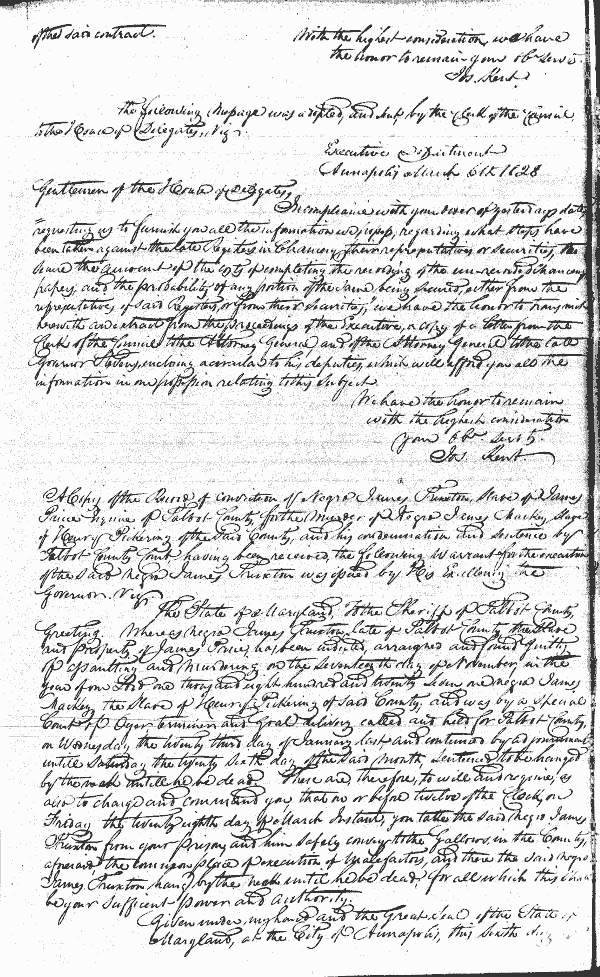 of the said contract.
With the highest consideration, we have
the honor to remain your obt servts.
Jos. Kent.
The following message was adopted, and sent by the Clerk of the Council
to the House of Delegates, Viz
Executive Department
Annapolis March 6th 1828
Gentlemen of the House of Delegates,
In compliance with your order of yesterdays date,
"requesting us to furnish you all the information we possess, regarding what steps have
been taken against the late Registers in Chancery, their representatives or securities, to
secure the amount of the cost of completing the recording of the un-recorded Chancery
papers, and the probability of any portion of the same being secured, either from the
representatives, of said Registers, or from their securities," we have the honor to transmit
herewith an extract from the proceedings of the Executive, a copy of a letter from the
Clerk of the Council to the Attorney General and of the Attorney General to the late
Governor Stevens, enclosing a circular to his deputies, which will afford you all the
information in our possession relating to this subject.
We have the honor to remain
with the highest consideration
your obt servts.
Jos. Kent
A Copy of the Record of conviction of Negro James Truxton, Slave of James
Price Esquire of Talbot County for the Murder of Negro James Mackey, Slave
of Henry Pickering of the said County, and his condemnation and sentence by
Talbot County Court, having been received, the following Warrant for the execution
of the said negro James Truxton was issued by His Excellency the
Governor. Viz
The State of Maryland, To the Sheriff of Talbot County,
Greeting. Whereas negro James Truxton, late of Talbot County, the slave
and property of James Price, has been indicted, arraigned and found guilty
of assaulting and murdering on the seventeenth day of November, in the
year of our Lord one thousand eight hundred and twenty seven one negro James
Mackey the slave of Henry Pickering of said County, and was by a special
Court of Oyer terminer and Goal delivery called and held for Talbot County,
on Wednesday the twenty third day of January last and continued by adjournment
untill Saturday the twenty sixth day of the said month, sentenced to be hanged
by the neck untill he be dead. These are therefore, to will and require, as
also to charge and command you that on or before twelve of the Clock, on
Friday the twenty eighth day of March Instant, you take the said negro James
Truxton from your prison, and him safely convey to the Gallows, in the County,
aforesaid, the common place of execution of malefactors, and there the said negro
James Truxton hang by the neck until he be dead; for all which this shall
be your sufficient power and authority.
Given under my hand and the Great Seal of the State of
Maryland, at the City of Annapolis, this sixth day